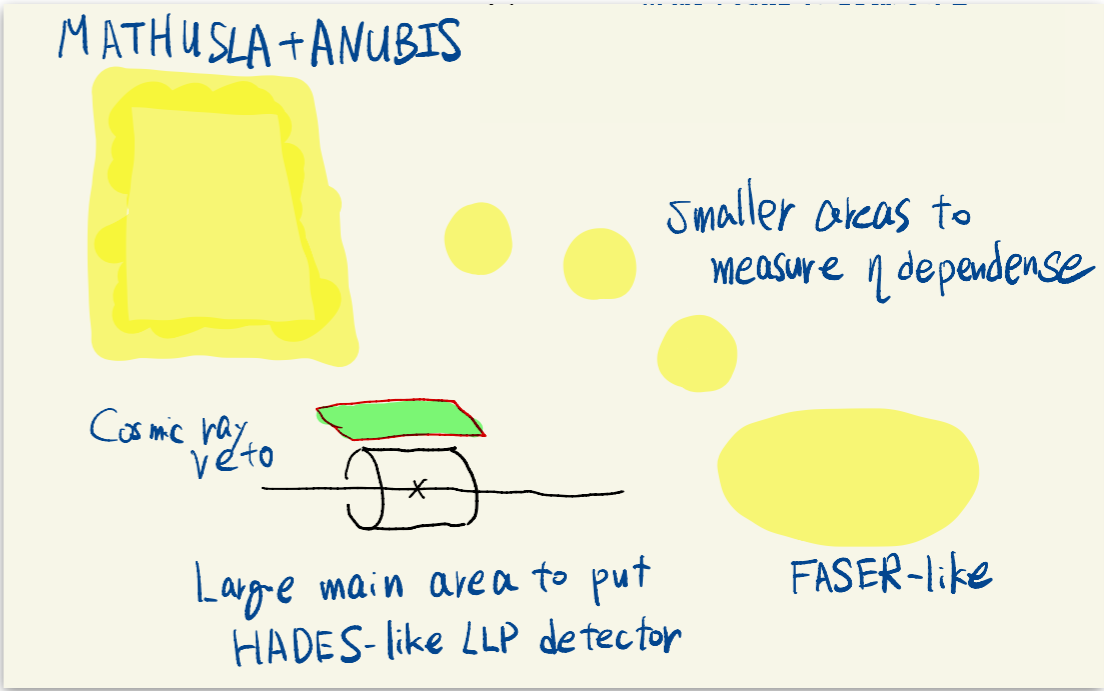 MATHUSLA+ANUBIS
Smaller areas to
measure η dependense
Cosmic ray
veto
x
Large main area to put
HADES-like LLP detector
FASER-like